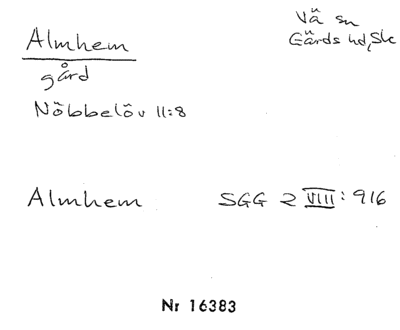 Almhem
Vä sn
Gärds hd, Sk
gård
Nöbbelöv 11:8
Almhem SGG 2 VIII: 916
Nr 16383